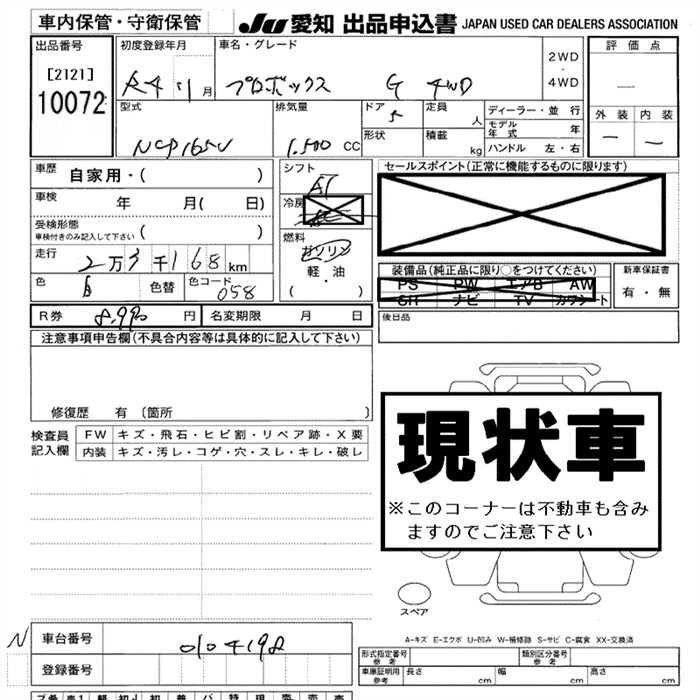 車内保管・守衛保管
JU 愛知 出品申込書 JAPAN USED CAR DEALERS ASSOCIATION
出品番号
[2121]
10072
初度登録年月
R4 年 1 月
車名・グレード
プロボックス G 4WD
2WD
・
4WD
評価点
―
外装 内装
― ―
型式
NCP165V
排気量
1,500 CC
ドア
5
形状
定員
人
積載
kg
ディーラー・並行
モデル年式 年
ハンドル 左・右
車歴 自家用・( )
車検 年 月( 日)
受検形態
車検付きのみ記入して下さい ( )
走行 2万3千168km
色 白 色替 色コード 058
シフト
AT
冷房
燃料
ガソリン
軽・油
( ・ )
セールスポイント(正常に機能するものに限ります)
装備品(純正品に限り○をつけてください)
PS PW エアB AW
SH ナビ TV カワシート
新車保証書
有・無
R券 8,990 円 名変期限 月 日
後日品
注意事項申告欄(不具合内容等は具体的に記入して下さい)
修復歴 有 〔箇所 〕
検査員記入欄
FW キズ・飛石・ヒビ割・リペア跡・X要
内装 キズ・汚レ・コゲ・穴・スレ・キレ・破レ
現状車
※このコーナーは不動車も含み
ますのでご注意下さい
スペア
A-キズ E-エクボ U-凹み W-補修跡 S-サビ C-腐食 XX-交換済
N
車台番号 0104198
登録番号
形式指定番号
参考
類別区分番号
参考
車庫証明用
参考
長さ cm 幅 cm 高さ cm